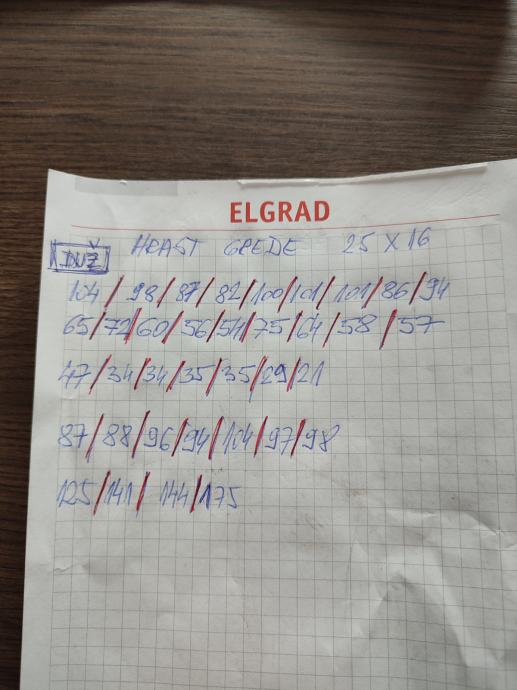 ELGRAD
DUŽ HRAST GREDE 25 X 16
104 / 98 / 87 / 82 / 100 / 101 / 101 / 86 / 94
65 / 72 / 60 / 56 / 54 / 75 / 64 / 58 / 57
47 / 34 / 34 / 35 / 35 / 29 / 21
87 / 88 / 96 / 94 / 104 / 97 / 98
125 / 141 / 144 / 175